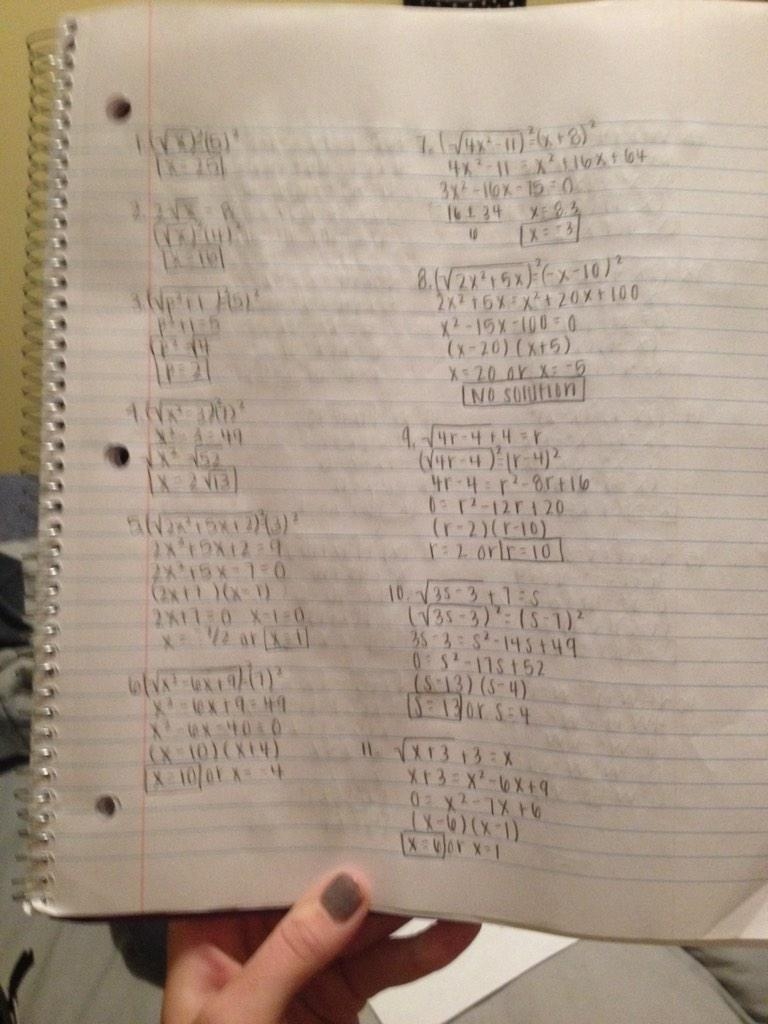 1. (√x)²(5)²
x = 25
2. 2√x = 8
(√x)²(4)²
x = 16
3. (√p²+1)²(5)²
p²+1=5
p² √4
p = 2
4. (√x²-3)²(7)²
x²-3 = 49
√x² √52
x = 2√13
5. (√2x²+5x+2)²(3)²
2x²+5x+2=9
2x²+5x-7=0
(2x+7)(x-1)
2x+7=0 x-1=0
x = -7/2 or x=1
6. (√x²-6x+9)²(7)²
x²-6x+9=49
x²-6x-40=0
(x-10)(x+4)
x=10 or x=-4
7. (√4x²-11)²=(x+8)²
4x²-11 = x²+16x+64
3x²-16x-75=0
16±34 x=8.3
6 x=-3
8. (√2x²+5x)²=(-x-10)²
2x²+5x=x²+20x+100
x²-15x-100=0
(x-20)(x+5)
x=20 or x=-5
No solution
9. √4r-4+4=r
(√4r-4)²=(r-4)²
4r-4=r²-8r+16
0=r²-12r+20
(r-2)(r-10)
r=2 or r=10
10. √3s-3+7=s
(√3s-3)²=(s-7)²
3s-3=s²-14s+49
0=s²-17s+52
(s-13)(s-4)
s=13 or s=4
11. √x+3+3=x
x+3=x²-6x+9
0=x²-7x+6
(x-6)(x-1)
x=6 or x=1